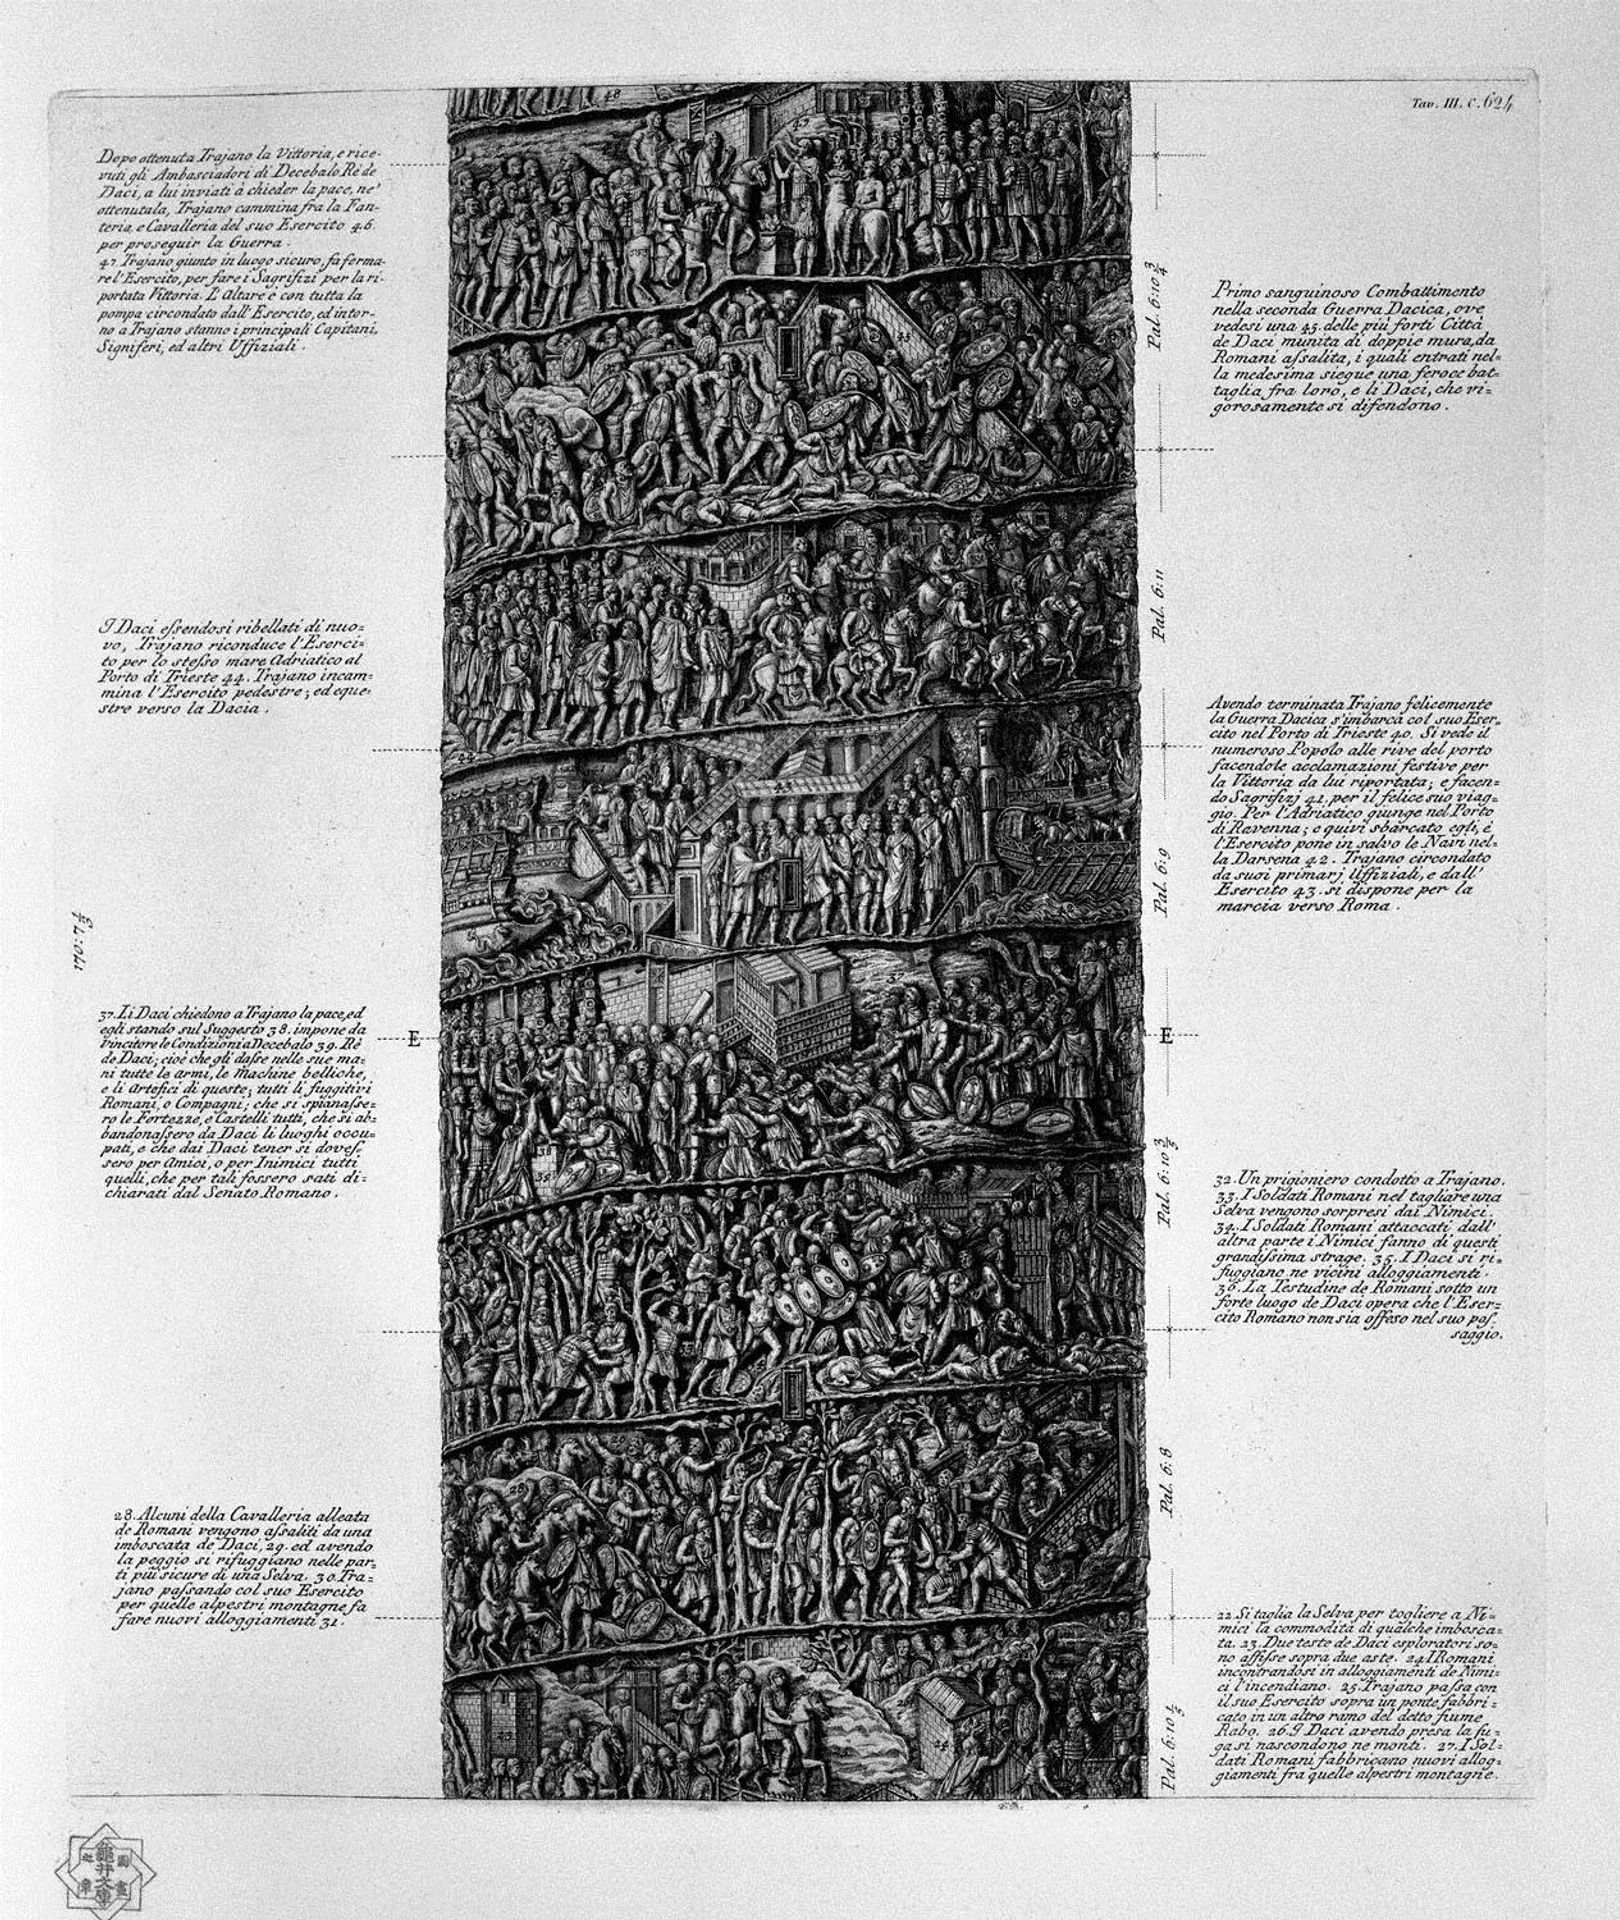 Tav. III. c. 624
Dopo ottenuta Trajano la Vittoria, e rice-
vuti gli Ambasciadori di Decebalo Rè de
Daci, a lui inviati à chieder la pace, ne'
ottenutala, Trajano cammina fra la Fan-
teria, e Cavalleria del suo Esercito 46.
per proseguir la Guerra.
47. Trajano giunto in luogo sicuro, fà ferma-
re l'Esercito, per fare i Sagrifizi per la ri-
portata Vittoria. L'Altare è con tutta la
pompa circondato dall'Esercito, ed intor-
no a Trajano stanno i principali Capitani,
Signiferi, ed altri Uffiziali.
Primo sanguinoso Combattimento
nella seconda Guerra Dacica, ove
vedesi una 45. delle più forti Città
de Daci munita di doppie mura, da
Romani assalita, i quali entrati nel=
la medesima siegue una feroce bat=
taglia fra loro, e li Daci, che vi=
gorosamente si difendono.
I Daci essendosi ribellati di nuo=
vo, Trajano riconduce l'Eserci=
to per lo stesso mare Adriatico al
Porto di Trieste 44. Trajano incam=
mina l'Esercito pedestre, ed eque=
stre verso la Dacia.
Avendo terminata Trajano felicemente
la Guerra Dacica s'imbarca col suo Eser=
cito nel Porto di Trieste 40. Si vede il
numeroso Popolo alle rive del porto
facendole acclamazioni festive per
la Vittoria da lui riportata; e facen=
do Sagrifizj 41. per il felice suo viag=
gio. Per l'Adriatico giunge nel Porto
di Ravenna; e quivi sbarcato egli, è
l'Esercito pone in salvo le Navi nel=
la Darsena 42. Trajano circondato
da suoi primarj Uffiziali, e dall'
Esercito 43. si dispone per la
marcia verso Roma.
37. Li Daci chiedono a Trajano la pace, ed
egli stando sul Suggesto 38. impone da
vincitore le Condizioni a Decebalo 39. Rè
de Daci; cioè che gli dasse nelle sue ma=
ni tutte le armi, le machine belliche,
e li Artefici di queste; tutti li fuggitivi
Romani, o Compagni; che si spianasse=
ro le Fortezze, e Castelli tutti, che si ab=
bandonassero da Daci li luoghi occu=
pati, e che dai Daci tener si doves=
sero per Amici, o per Inimici tutti
quelli, che per tali fossero sati di=
chiarati dal Senato Romano.
32. Un prigioniero condotto a Trajano.
33. I Soldati Romani nel tagliare una
Selva vengono sorpresi dai Nimici.
34. I Soldati Romani attaccati dall'
altra parte i Nimici fanno di questi
grandissima strage. 35. I Daci si ri=
fuggiano ne vicini alloggiamenti.
36. La Testudine de Romani sotto un
forte luogo de Daci opera che l'Eser=
cito Romano non sia offeso nel suo pas
saggio.
28. Alcuni della Cavalleria alleata
de Romani vengono assaliti da una
imboscata de Daci, 29. ed avendo
la peggio si rifuggiano nelle par=
ti più sicure di una Selva. 30. Tra=
jano passando col suo Esercito
per quelle alpestri montagne fa
fare nuovi alloggiamenti 31.
22. Si taglia la Selva per togliere a Ni=
mici la commodità di qualche imbosca=
ta. 23. Due teste de Daci esploratori so=
no affisse sopra due aste. 24. I Romani
incontrandosi in alloggiamenti de Nimi=
ci l'incendiano. 25. Trajano passa con
il suo Esercito sopra un ponte fabbri=
cato in un altro ramo del detto fiume
Rabo. 26. I Daci avendo presa la fu=
ga si nascondono ne monti. 27. I Sol=
dati Romani fabbricano nuovi allog=
giamenti fra quelle alpestri montagne.
Pal. 6:10 3/4
Pal. 6:11
Pal. 6:9
Pal. 6:10 3/5
Pal. 6:8
Pal. 6:10 1/5
E
E
48
47
45
44
43
42
37
38
39
33
29
28
24